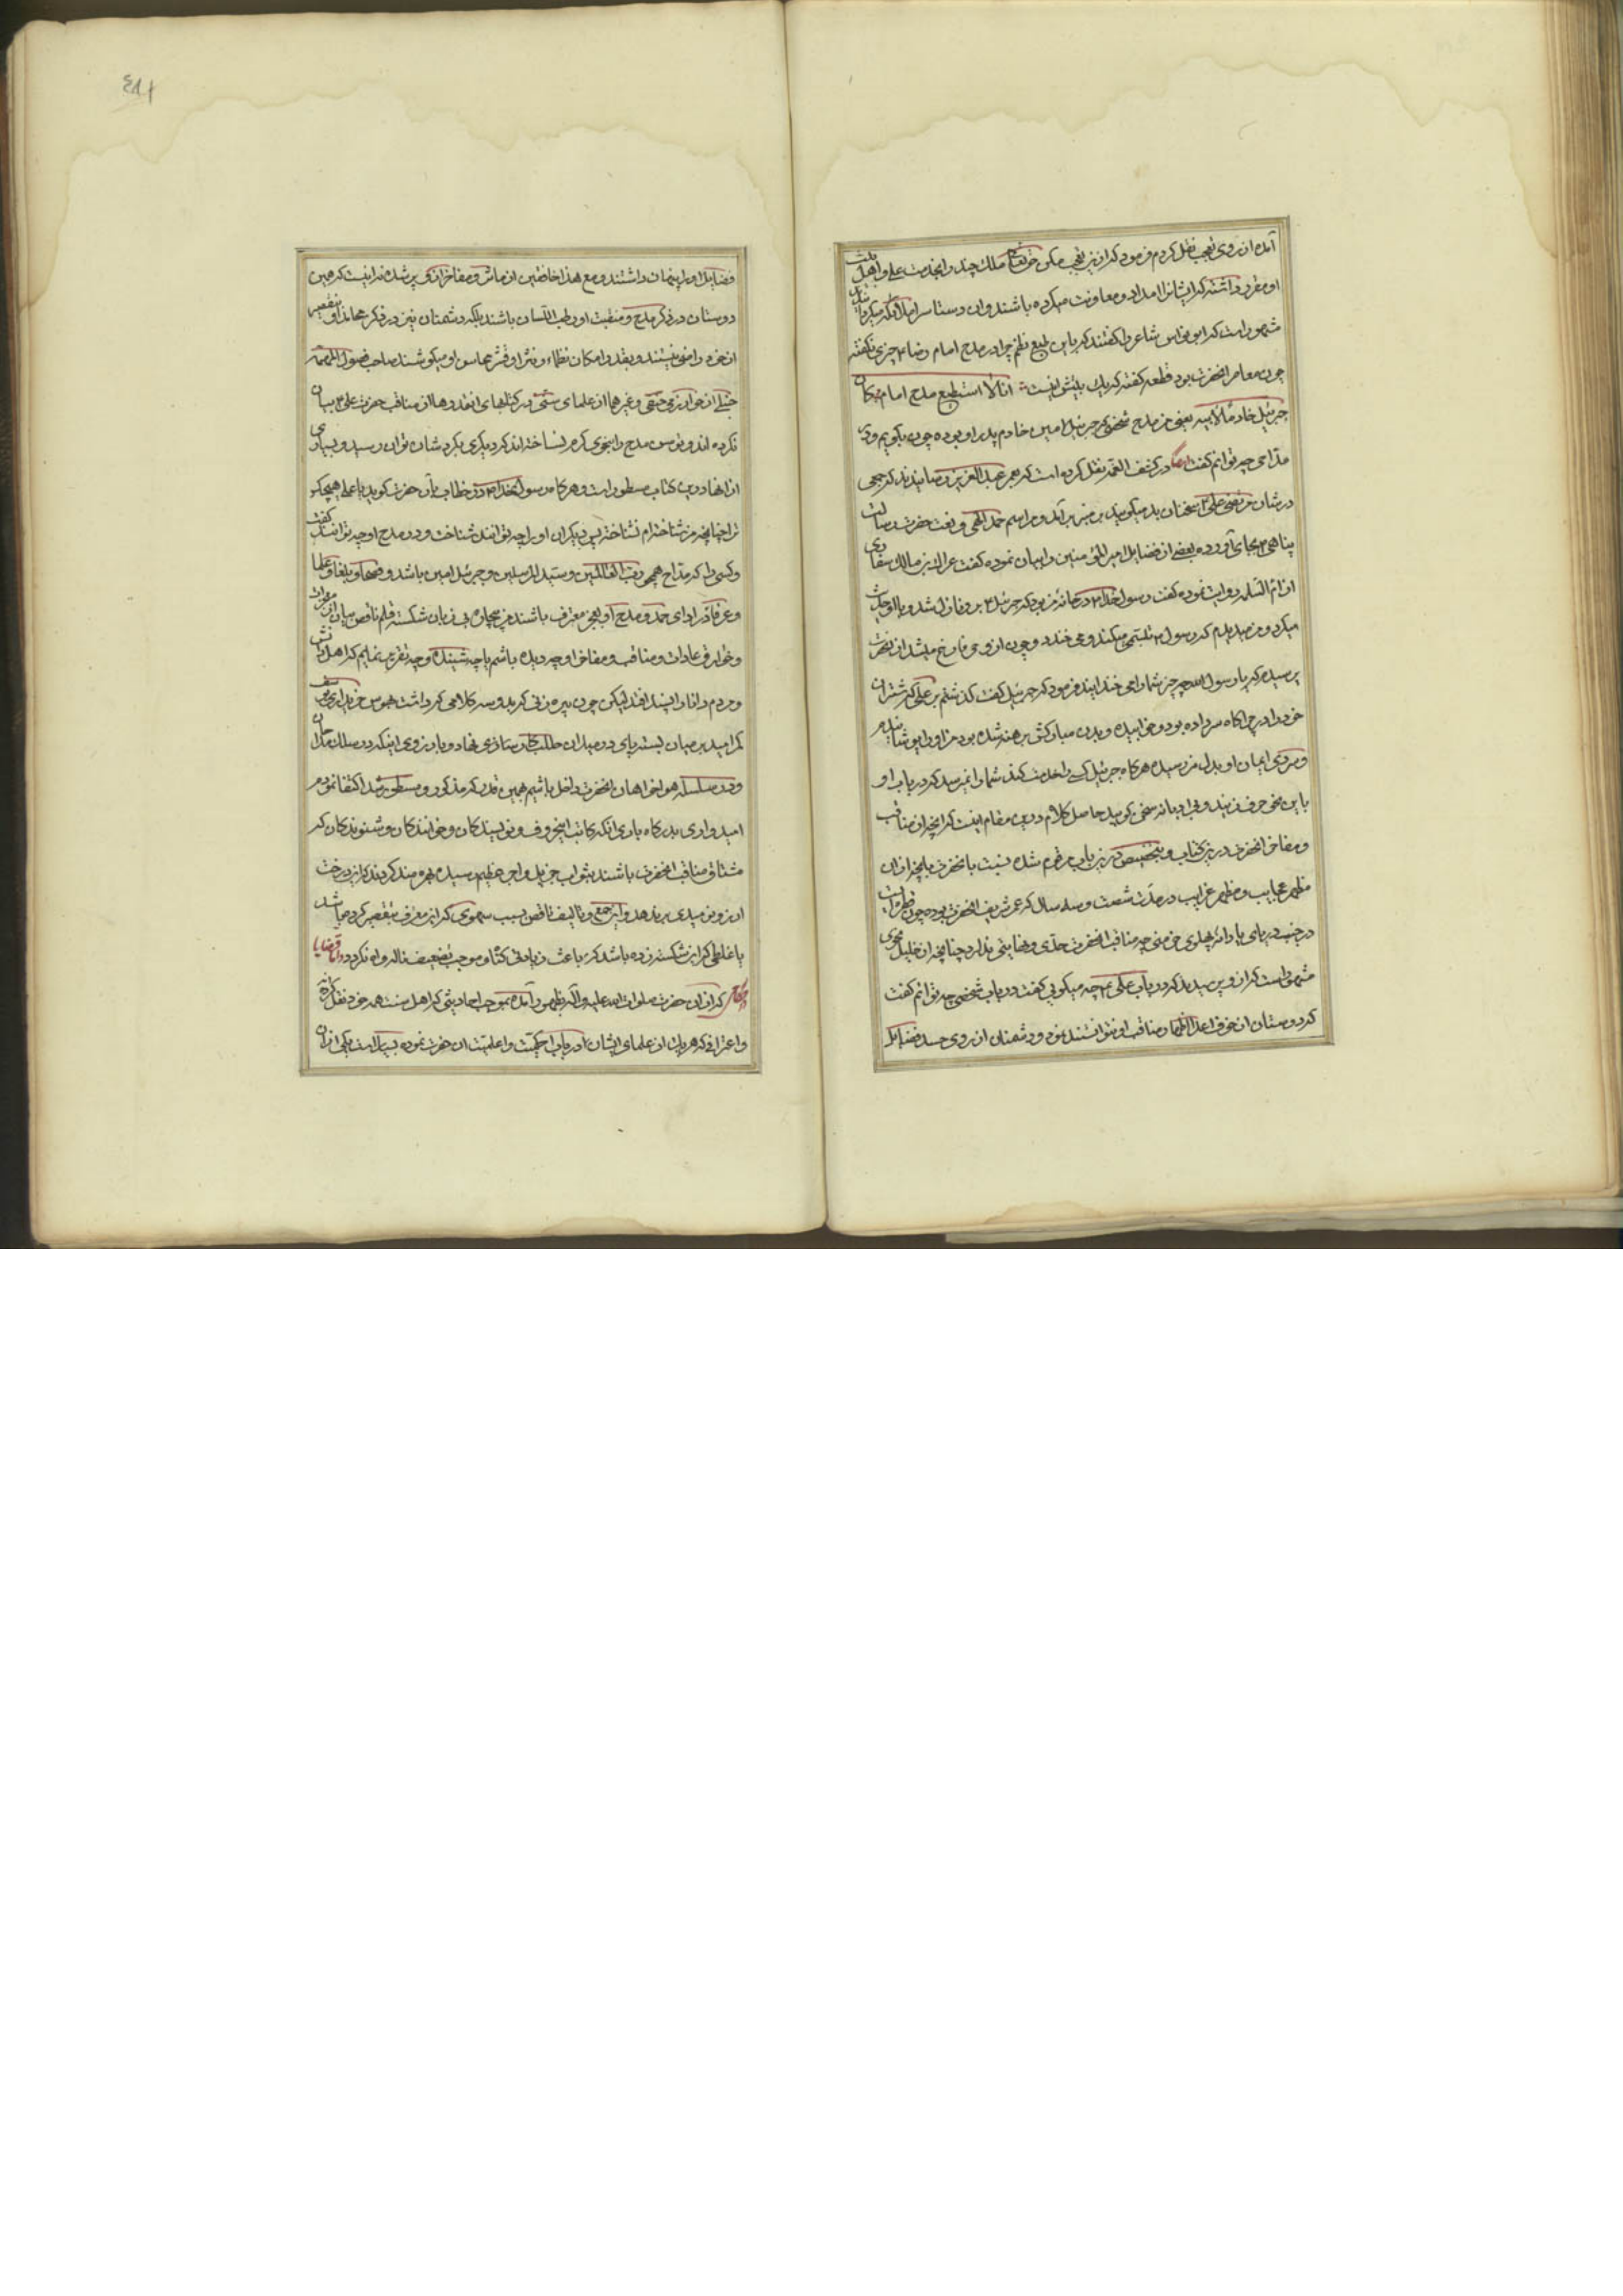 آمده از روی تعجب نقل کردم فرمود که ازین تعجب مکن حق تعالی ملک چند را بخدمت علی و اهل بیت
او مقرر داشته که ایشانرا امداد و معاونت میکرده باشند و آن دستاس را ملائکه میکردانیدند
مشهور است که ابو نواس شاعر را گفتند که باین طبع نظم چرا در مدح امام رضا ۴ چیزی نگفته
چون معاصر آنحضرت بود قطعه گفته که یک بیتش اینست انا لا استطیع مدح امام کان
جبرئیل خادما لابیه یعنی من مدح شخصی که جبرئیل امین خادم پدر او بوده چون بگویم و در
مداحی چه توانم گفت ایضا در کشف الغمه نقل کرده است که بعمر عبد العزیز رسانیدند که جمعی
در شان مرتضی علی ۴ سخنان بد میگویند بر منبر برآمد و مراسم حمد الهی و نعت حضرت رسالت
پناهی ۴ بجای آورده بعضی از فضایل امیر المؤمنین را بیان نموده گفت عراک بن مالک غفاری
از ام السلمه روایت نموده گفت رسول خدا ۴ در خانه من بود که جبرئیل ۴ برو نازل شد و با او حدیث
میکرد و من میدیدم که رسول ۴ تبسم میکند و می خندد و چون از وحی فارغ میشد از آنحضرت
پرسیدم که یا رسول الله چه چیز شما را می خنداند فرمود که جبرئیل گفت گذشتم بر علی که شتران
خود را در چراگاه سر داده بود و خوابیده و بدن مبارکش برهنه شده بود من او را پوشانیدم
و سردی ایمان او بدل من رسیده هرگاه جبرئیل کسی را خدمت کند شما را نمیرسد که در باب او
باین نحو حرف زنید و بی ادبانه سخن گویید حاصل کلام درین مقام اینست که آنچه از مناقب
و مفاخر آنحضرت درین کتاب و بتخصیص درین باب مرقوم شده نسبت بآنحضرت بآنچه از آن
مظهر عجایب و مظهر غرایب در مدت شصت و سه سال که عمر شریف آنحضرت بوده چون قطره ایست
در جنب دریای یا دانه پهلوی خرمنی چه مناقب آنحضرت حدی و نهایتی ندارد چنانچه از خلیل نحوی
مشهور است که از و پرسیدند که در باب علی ۴ چه میگویی گفت در باب شخصی چه توانم گفت
که دوستان از خوف اعدا اظهار مناقب او نتوانستند نمود و دشمنان از روی حسد فضایل
فضایل او را پنهان داشتند و مع هذا خافقین از ماثر و مفاخر او پر شده نه اینست که همین
دوستان در ذکر مدح و منقبت او رطب اللسان باشند بلکه دشمنان نیز در ذکر محامد او بتقصیر
از خود راضی نیستند و بقدر امکان نظما و نثرا در نشر محاسن او میکوشند صاحب فصول المهمه
حنبلی از خوارزمی حنفی و غیر هما از علمای سنی در کتابهای آنقدر ها از مناقب حضرت علی ۴ بیان
نکرده اند و توسن مدح را بنحوی گرم نساخته اند که دیگری بگرد شان تواند رسید و بسیاری
از انها درین کتاب مسطور است و هرگاه رسول خدا ۴ در خطاب بآن حضرت گوید یا علی هیچکس
ترا چنانچه من شناخته ام نشناخته پس دیگران او را چه توانند شناخت و در مدح او چه توانند گفت
و کسی را که مداح همچو رب العالمین و سید المرسلین و جبرئیل امین باشد و فصحا و بلغا و علما
و عرفا در ادای حمد و مدح او بعجز معترف باشند من بیچاره بی زبان شکسته قلم ناقص بیان از معجزات
و خوارق عادات و مناقب و مفاخر او چه دیده باشم یا چه شنیده و چه تقریب نمایم که اهل دانش
و مردم دانا را پسند افتد لیکن چون پیره زنی که بد و سه کلافی که داشت هوس خریداری یوسف
کمر امید بر میان بسته پای در میدان طلب نهاد و بارزوی اینکه در سلک مداحان
و در سلسله هواخواهان آنحضرت داخل باشیم همین قدر که مذکور و مسطور شد اکتفا نمودم
امیدواری بدرگاه باری آنکه کاتب این حروف و نویسندکان و خوانندکان و شنوندکان که
مشتاق مناقب آنحضرت باشند بثواب جزیل و اجر عظیم رسیده بهره مند کردند که این درخت
ارزو نومیدی بر ندهد و این جمع و تالیف ناقص بسبب سهوی که این معترف بتقصیر کرده باشد
یا غلطی که این شکسته زده باشد که باعث زیادتی گناه و موجب تضعیف ناله و آه نکردد و اما قضایا
و احکام که از آن حضرت صلوات الله علیه و اله بظهور آمده بموجب احادیثی که اهل سنت همه خود نقل کرده
و اعترافی که هر یک از علمای ایشان در باب احکمیت و اعلمیت آن حضرت نموده بسیار است یکی از آن